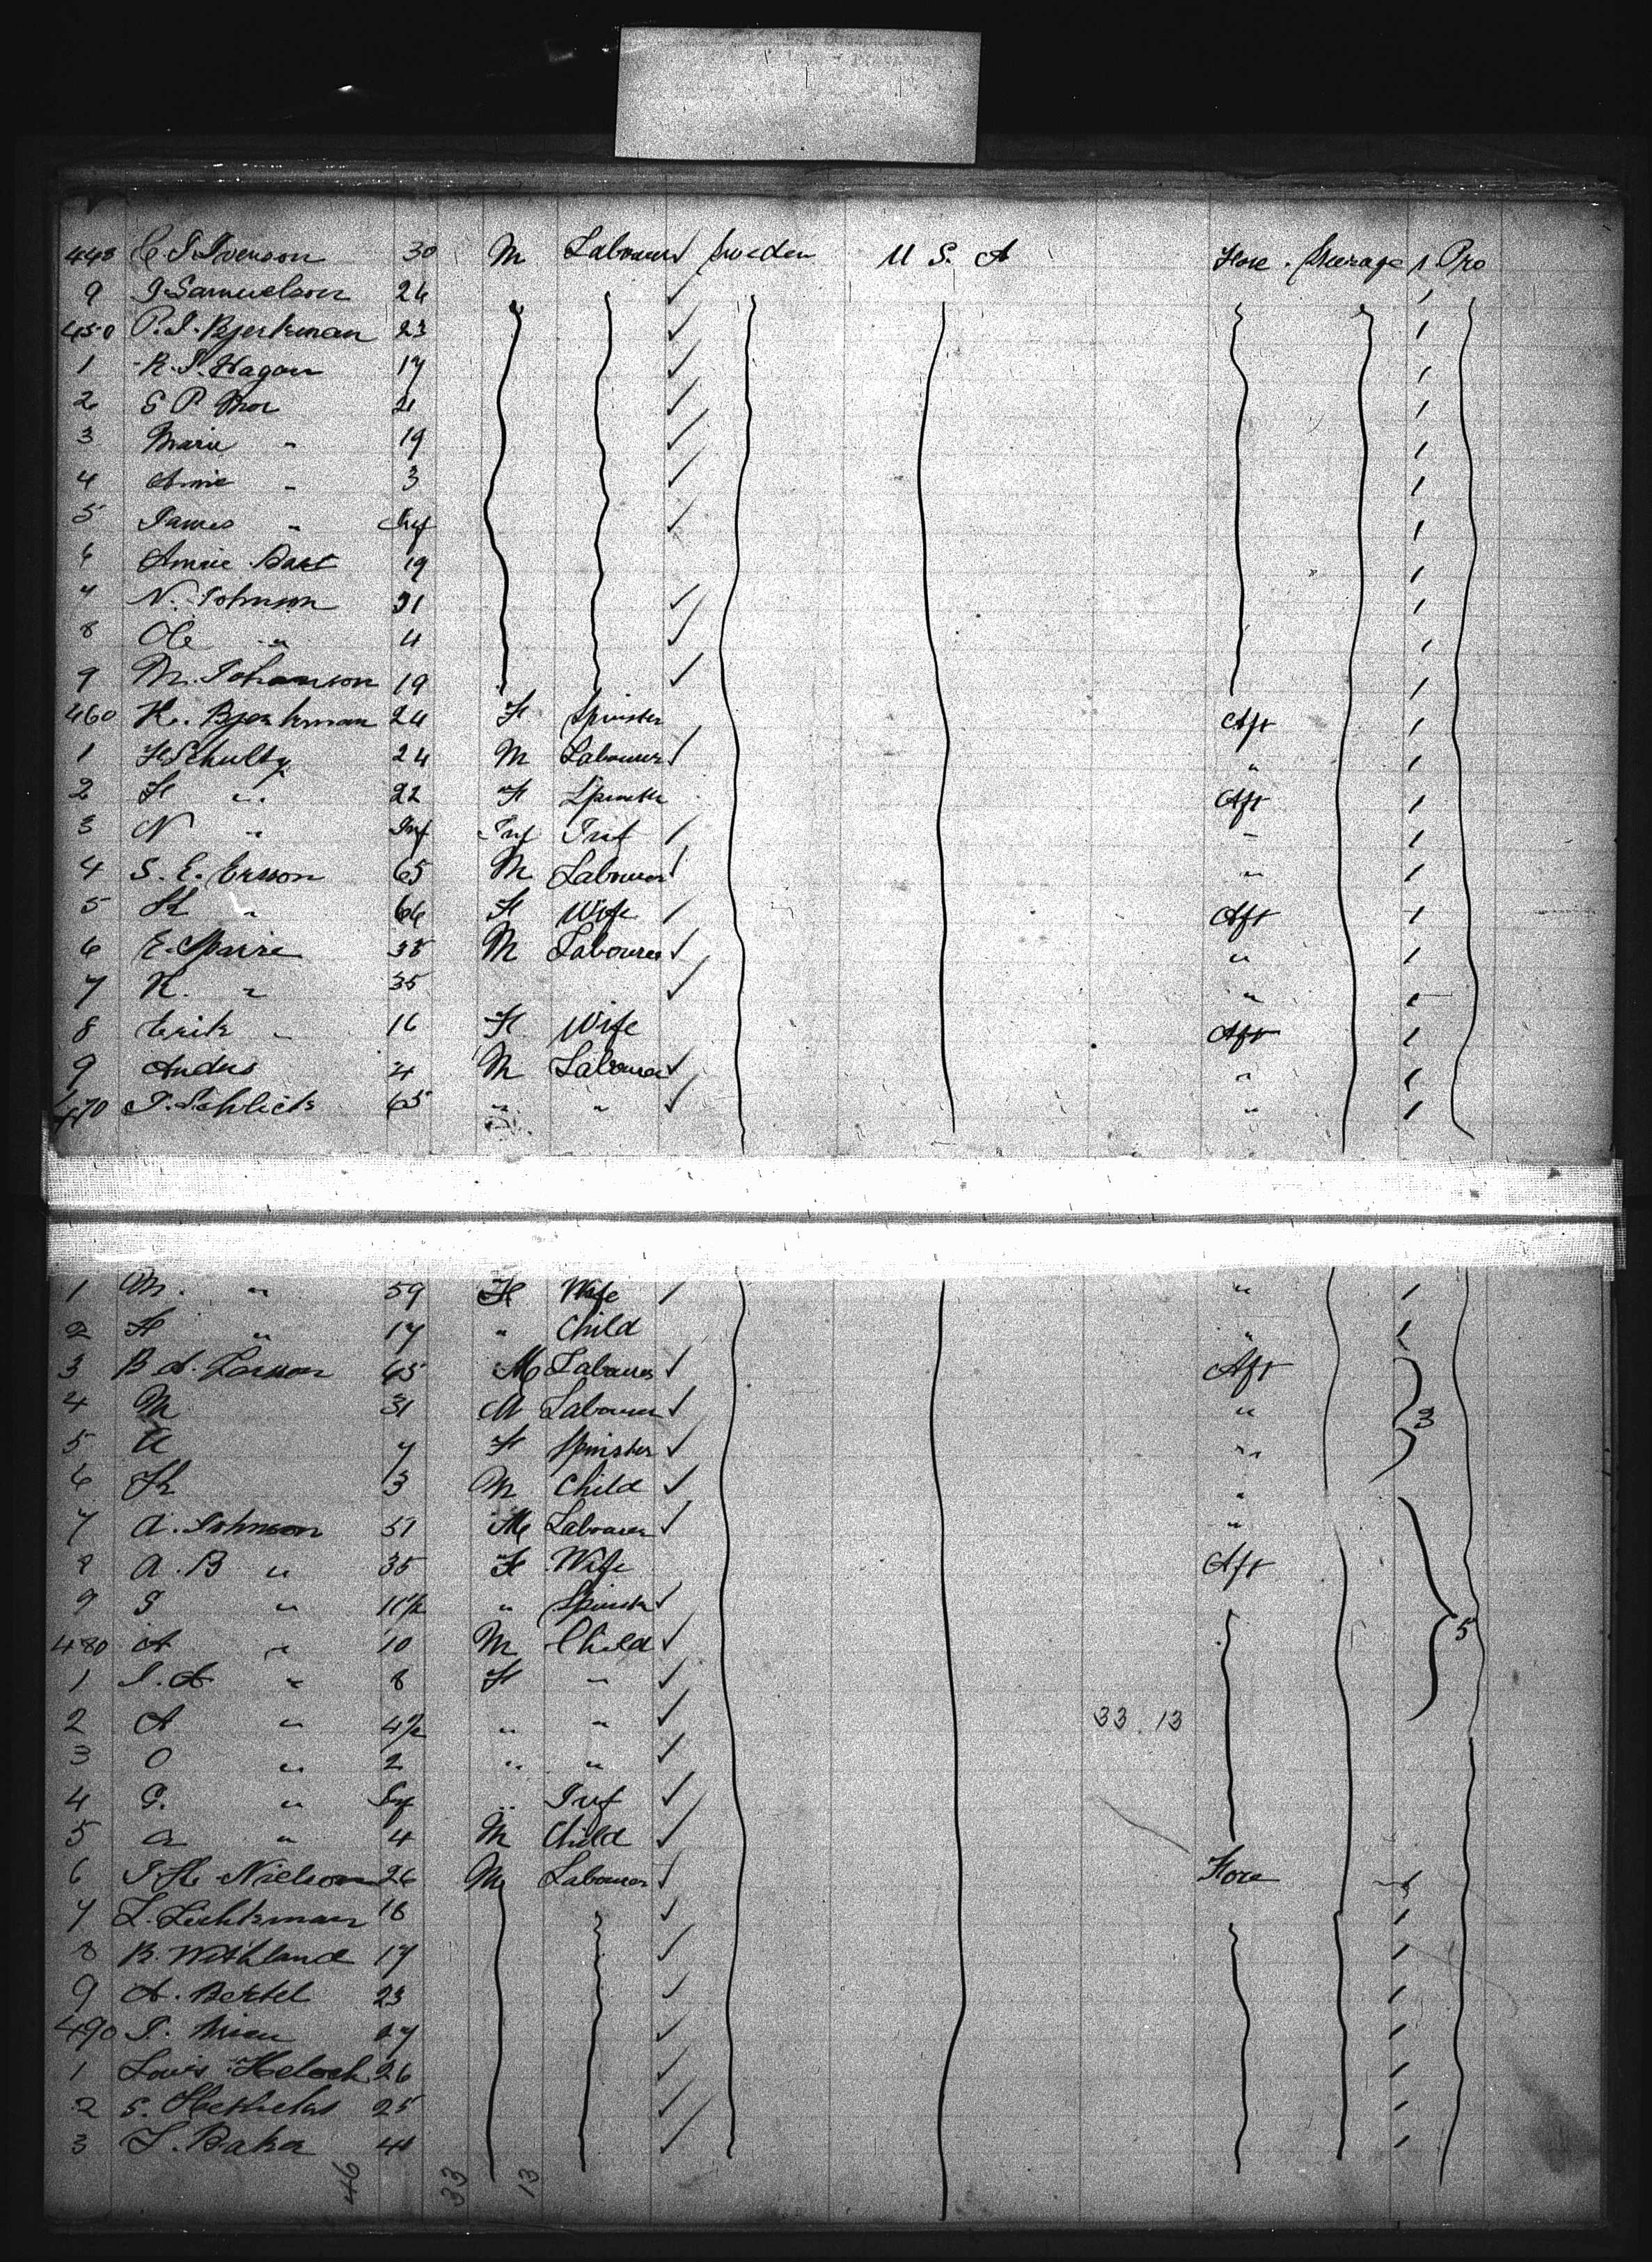 448 C. J. Iverson 30 M Labourer ✓ Sweden U S. A Fore. Steerage 1 Pro
9 J Samuelson 26 ✓
450 P. J. Bjerkman 23 ✓
1 R. J. Hagan 17 ✓
2 S P Mor 21 ✓
3 Marie " 19 ✓
4 Annie " 3 ✓
5 James " Inf ✓
6 Annie 19
7 N. Johnson 21 ✓
8 Ole " 4 ✓
9 M. Johanson 19 ✓
460 K. Bjerkman 24 F Spinster Aft
1 F Schultz 24 M Labourer "
2 F " 22 F Spinster Aft
3 N " Inf Inf Inf "
4 S. E. Ersson 65 M Labourer "
5 K " 66 F Wife Aft
6 E. Sparre 38 M Labourer ✓ "
7 K. " 35 ✓ "
8 Erik " 16 F Wife Aft
9 Andus 4 M Labourer ✓ "
470 J. Schlick 65 " " ✓ "
1 M. " 59 F Wife "
2 F " 17 " Child "
3 B A. Larsson 65 M Labourer ✓ Aft
4 M 31 M Labourer ✓ " 3
5 A 7 F Spinster ✓ "
6 K 3 M Child ✓ "
7 A. Johnson 51 M Labourer ✓ "
8 A. B " 35 F Wife Aft
9 S " 11½ " Spinster ✓
480 A " 10 M Child ✓ 5
1 J. A " 8 F " ✓
2 A " 4½ " " ✓ 33. 13
3 O " 2 " " ✓
4 G. " Inf " Inf ✓
5 a " 4 M Child ✓
6 J. H. Nielson 26 M Labourer ✓ Fore
7 L. Lichtman 18 ✓
8 R. Withland 17 ✓
9 A. Bertel 23 ✓
490 J. ✓
1 Louis 26 ✓
2 S. 25 ✓
3 L. Baker ✓
46 33 13